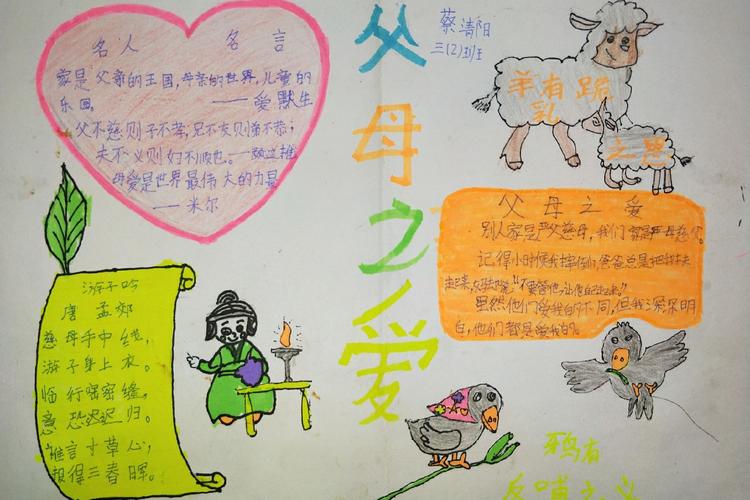 名人 名言
家是父亲的王国,母亲的世界,儿童的
乐园。
——爱默生
父不慈则子不孝;兄不友则弟不恭;
夫不义则妇不顺也。——颜之推
母爱是世界最伟大的力量
——米尔
父母之爱
蔡清阳
三(2)班
羊有跪
乳
之恩
父母之爱
别人家是严父慈母,我们家是严母慈父。
记得小时候我摔倒,爸爸总是把我扶
起来,
虽然他们爱我的不同,但我深深明
白,他们都是爱我的。
游子吟
唐 孟郊
慈母手中线,
游子身上衣。
临行密密缝,
意恐迟迟归。
谁言寸草心,
报得三春晖。
鸦有
反哺之义